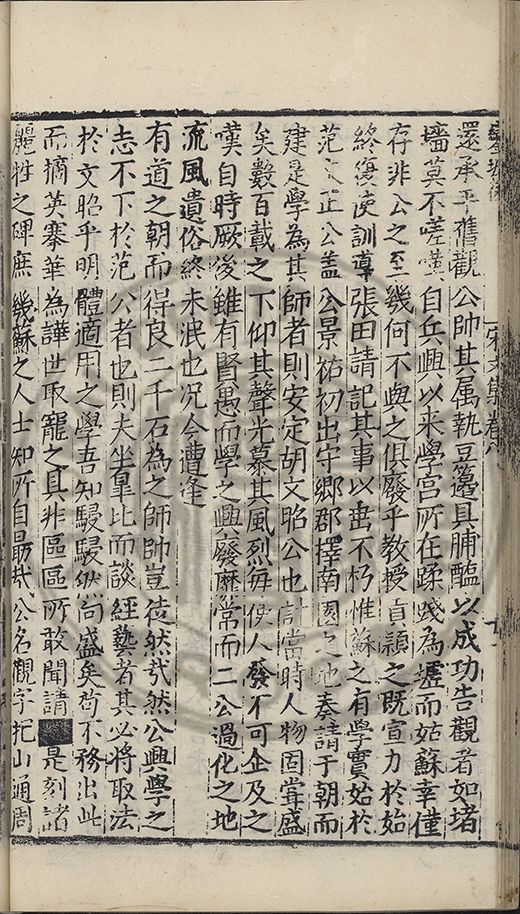 宋文集卷八
還承平舊觀公帥其属執豆籩具脯醢以成功告觀者如堵
墻莫不嗟嘆自兵興以来學宫所在蹂踐為墟而姑蘇幸僅
存非公之至幾何不與之俱廢乎教授貢頴之既宣力於始
終復使訓導張田請記其事以垂不朽惟蘇之有學實始於
范文正公盖公景祐初出守郷郡擇南園之地奏請于朝而
建是學為其師者則安定胡文昭公也計當時人物固嘗盛
矣數百載之下仰其聲光慕其風烈每使人發不可企及之
嘆自時厥後雖有賢愚而學之興廢靡常而二公過化之地
流風遺俗終未泯也况今遭逢
有道之朝而得良二千石為之師帥豈徒然㢤然公興學之
志不下於范公者也則夫坐臯比而談經藝者其必將取法
於文昭乎明體適用之學吾知駸駸然向盛矣苟不務出此
而摘英搴華為譁世取寵之具非區區所敢聞請是刻諸
麗牲之碑庶幾蘇之人士知所自勗㢤公名觀字杞山通周